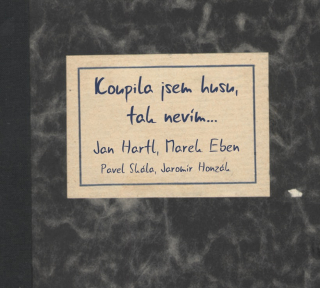 Koupila jsem husu,
tak nevím...
Jan Hartl, Marek Eben
Pavel Skála, Jaromír Honzák